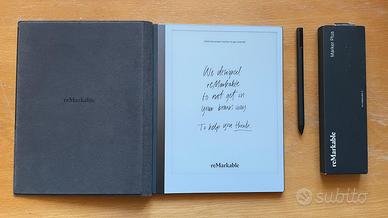 reMarkable
We designed
reMarkable
to not get in
your brain's way.
To help you think.
reMarkable
Marker Plus
reMarkable
subito